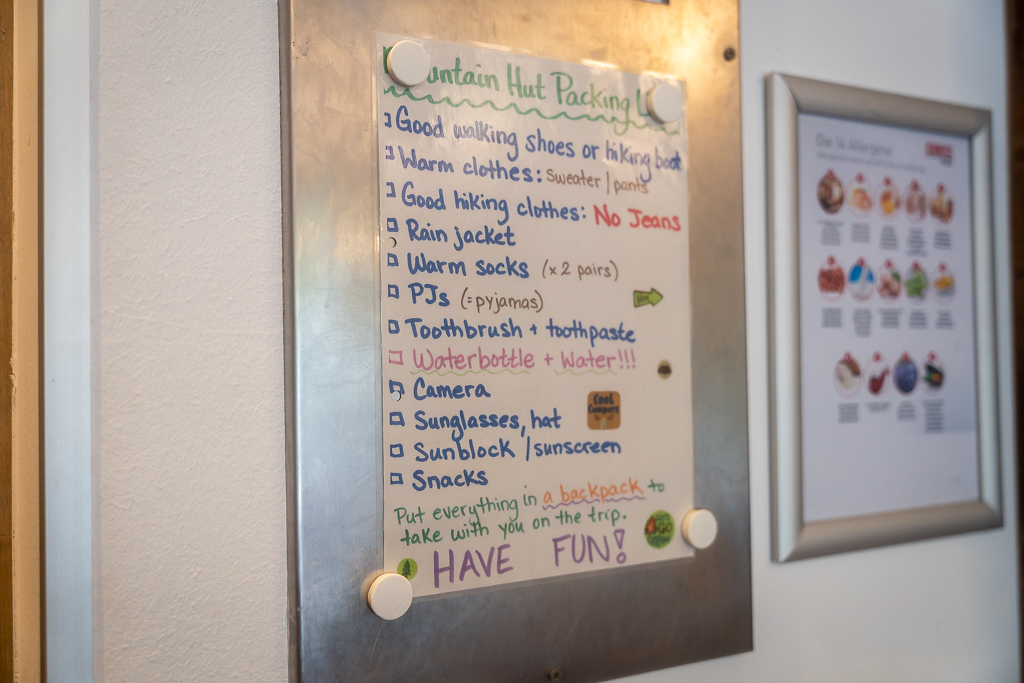 untain Hut Packing L
Good walking shoes or hiking boot
Warm clothes: sweater / pants
Good hiking clothes: No Jeans
Rain jacket
Warm socks (x 2 pairs)
PJs (=pyjamas)
Toothbrush + toothpaste
Waterbottle + Water!!!
Camera
Cool Campers
Sunglasses, hat
Sunblock / sunscreen
Snacks
Put everything in a backpack to
take with you on the trip.
HAVE FUN!
Die 14 Allergene